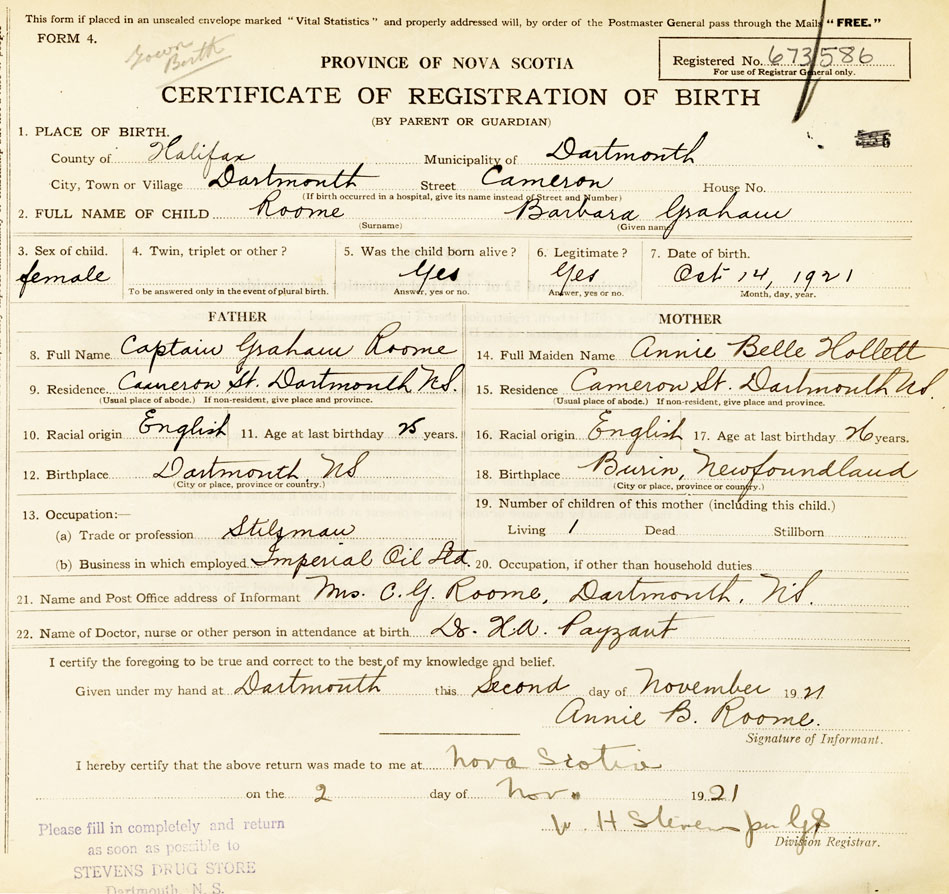 This form if placed in an unsealed envelope marked "Vital Statistics" and properly addressed will, by order of the Postmaster General pass through the Mails "FREE."
FORM 4.
Birth
Registered No. 673586
For use of Registrar General only.
PROVINCE OF NOVA SCOTIA
CERTIFICATE OF REGISTRATION OF BIRTH
(BY PARENT OR GUARDIAN)
1. PLACE OF BIRTH.
County of Halifax Municipality of Dartmouth
City, Town or Village Dartmouth Street Cameron House No.
(If birth occurred in a hospital, give its name instead of Street and Number)
2. FULL NAME OF CHILD Roome Barbara Graham
(Surname) (Given name)
3. Sex of child. 4. Twin, triplet or other? 5. Was the child born alive? 6. Legitimate? 7. Date of birth.
female Yes Yes Oct 14, 1921
To be answered only in the event of plural birth. Answer, yes or no. Answer, yes or no. Month, day, year.
FATHER MOTHER
8. Full Name Captain Graham Roome 14. Full Maiden Name Annie Belle Hollett
9. Residence Cameron St. Dartmouth N.S. 15. Residence Cameron St. Dartmouth N.S.
(Usual place of abode.) If non-resident, give place and province. (Usual place of abode.) If non-resident, give place and province.
10. Racial origin English 11. Age at last birthday 25 years. 16. Racial origin English 17. Age at last birthday 26 years.
12. Birthplace Dartmouth, NS 18. Birthplace Burin, Newfoundland
(City or place, province or country.) (City or place, province or country.)
13. Occupation:— 19. Number of children of this mother (including this child.)
(a) Trade or profession Stilsman Living 1 Dead Stillborn
(b) Business in which employed Imperial Oil Ltd. 20. Occupation, if other than household duties
21. Name and Post Office address of Informant Mrs. C. G. Roome, Dartmouth, N.S.
22. Name of Doctor, nurse or other person in attendance at birth Dr. H.A. Payzant
I certify the foregoing to be true and correct to the best of my knowledge and belief.
Given under my hand at Dartmouth this Second day of November 1921
Annie B. Roome.
Signature of Informant.
I hereby certify that the above return was made to me at Nova Scotia
on the 2 day of Nov. 1921
H Stevens
Division Registrar.
Please fill in completely and return
as soon as possible to
STEVENS DRUG STORE
Dartmouth, N. S.